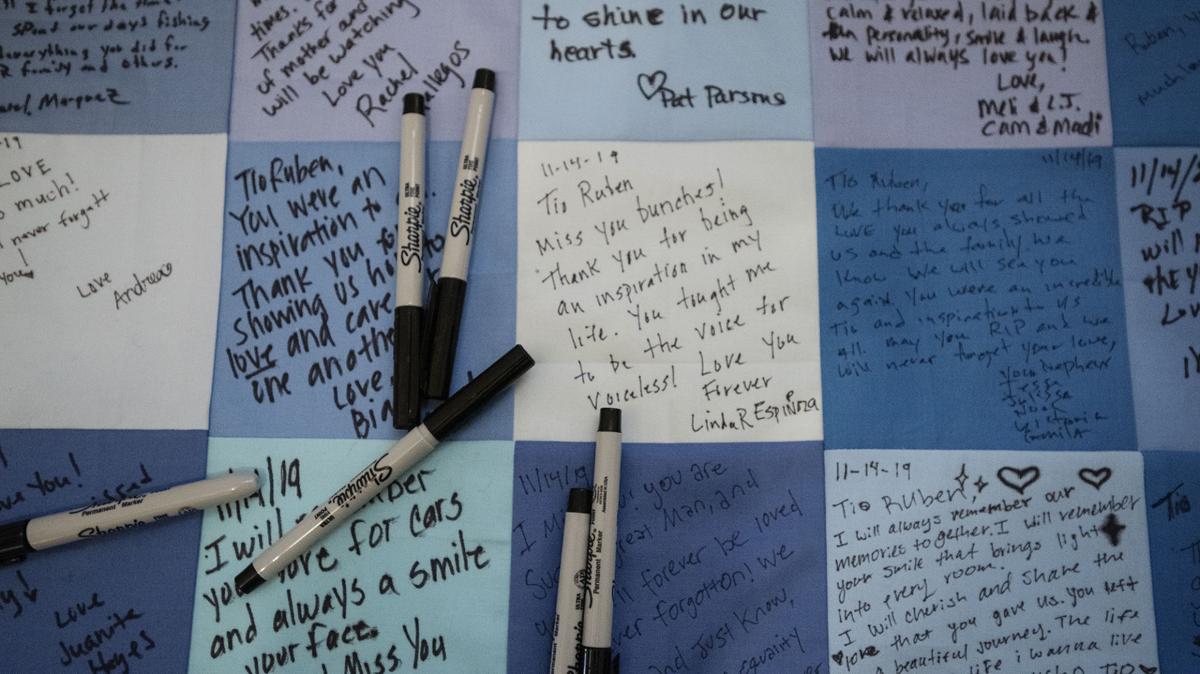 I forgot the
spend our days fishing
everything you did for
family and others.
Marquez
times.
Thanks for
of mother and
will be watching
Love you
Rachel
Gallegos
to shine in our
hearts.
Pat Parsons
calm & relaxed, laid back &
fun personality, smile & laugh.
We will always love you!
Love,
Meli & L.J.
Cam & Madi
Ruben,
much
-19
LOVE
so much!
never forgott
you!
Love
Andrea
Tio Ruben,
You were an
inspiration to
Thank you
showing us
love and care
one another
Love
Sharpie
Sharpie
11-14-19
Tio Ruben
Miss you bunches!
Thank you for being
an inspiration in my
life. You tought me
to be the voice for
voiceless! Love you
Forever
Linda R Espinoza
11/14/19
Tio Ruben,
We thank you for all the
LOVE you always showed
us and the family. We
know we will see you
again. You were an incredible
Tio and inspiration to us
all. May you RIP and we
will never forget your love,
your Nephew
Jesse
Julissa
Noah
Victoria
Camila
11/14/
RIP
will
the
Love You!
missed
Sharpie
Permanent Marker
Love
Juanita
Hayes
/19
I will
love for cars
and always a smile
your face.
I Miss You
Sharpie
11/14/19
you are
great Man, and
will forever be loved
never forgotten! We
and Just Know,
equality
Sharpie
Permanent Marker
11-14-19
Tio Ruben,
I will always remember our
memories together. I will remember
your smile that brings light
into every room.
I will cherish and share the
love that you gave us. You left
a beautiful journey. The life
life i wanna live
Tio
Tio